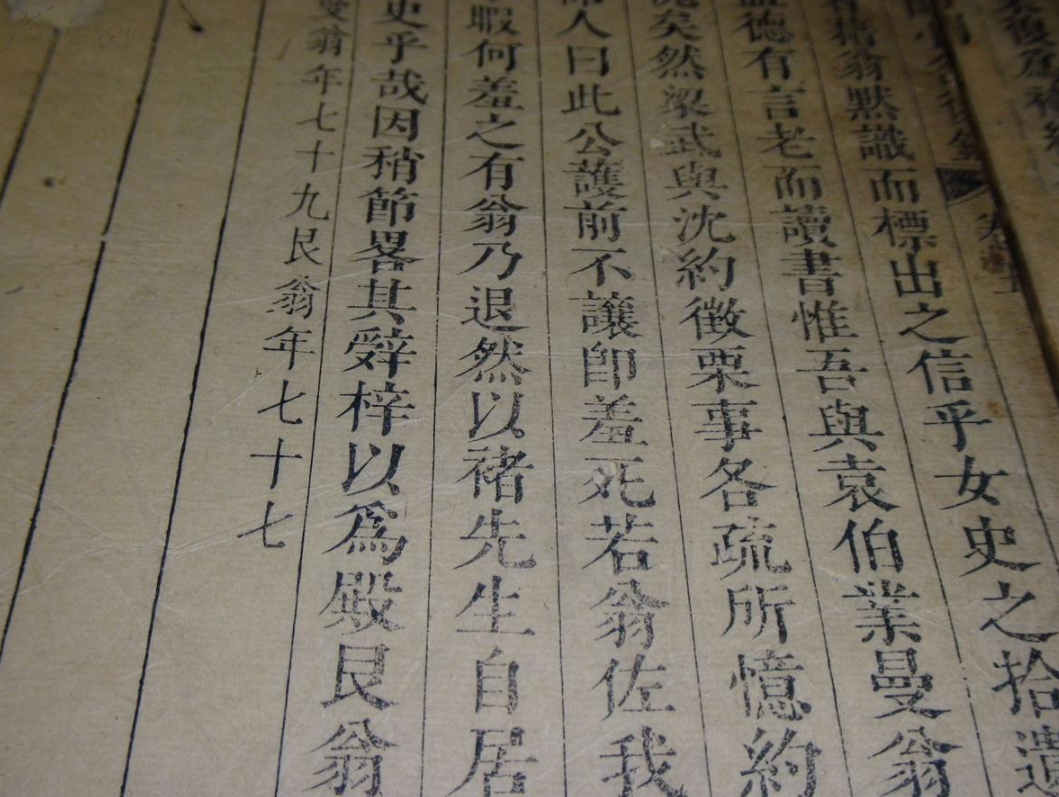 翁默識而標出之信乎女史之拾遺
德有言老而讀書惟吾與袁伯業曼翁
矣然梁武與沈約徵栗事各疏所憶約
人曰此公護前不讓即羞死若翁佐我
暇何羞之有翁乃退然以褚先生自居
史乎哉因稍節畧其辤梓以爲殿艮翁
曼翁年七十九艮翁年七十七